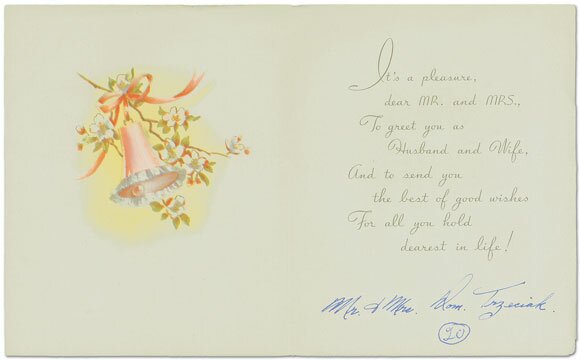 It's a pleasure,
dear MR. and MRS.,
To greet you as
Husband and Wife,
And to send you
the best of good wishes
For all you hold
dearest in life!
Mr. & Mrs. Dom. Trzeciak.
20